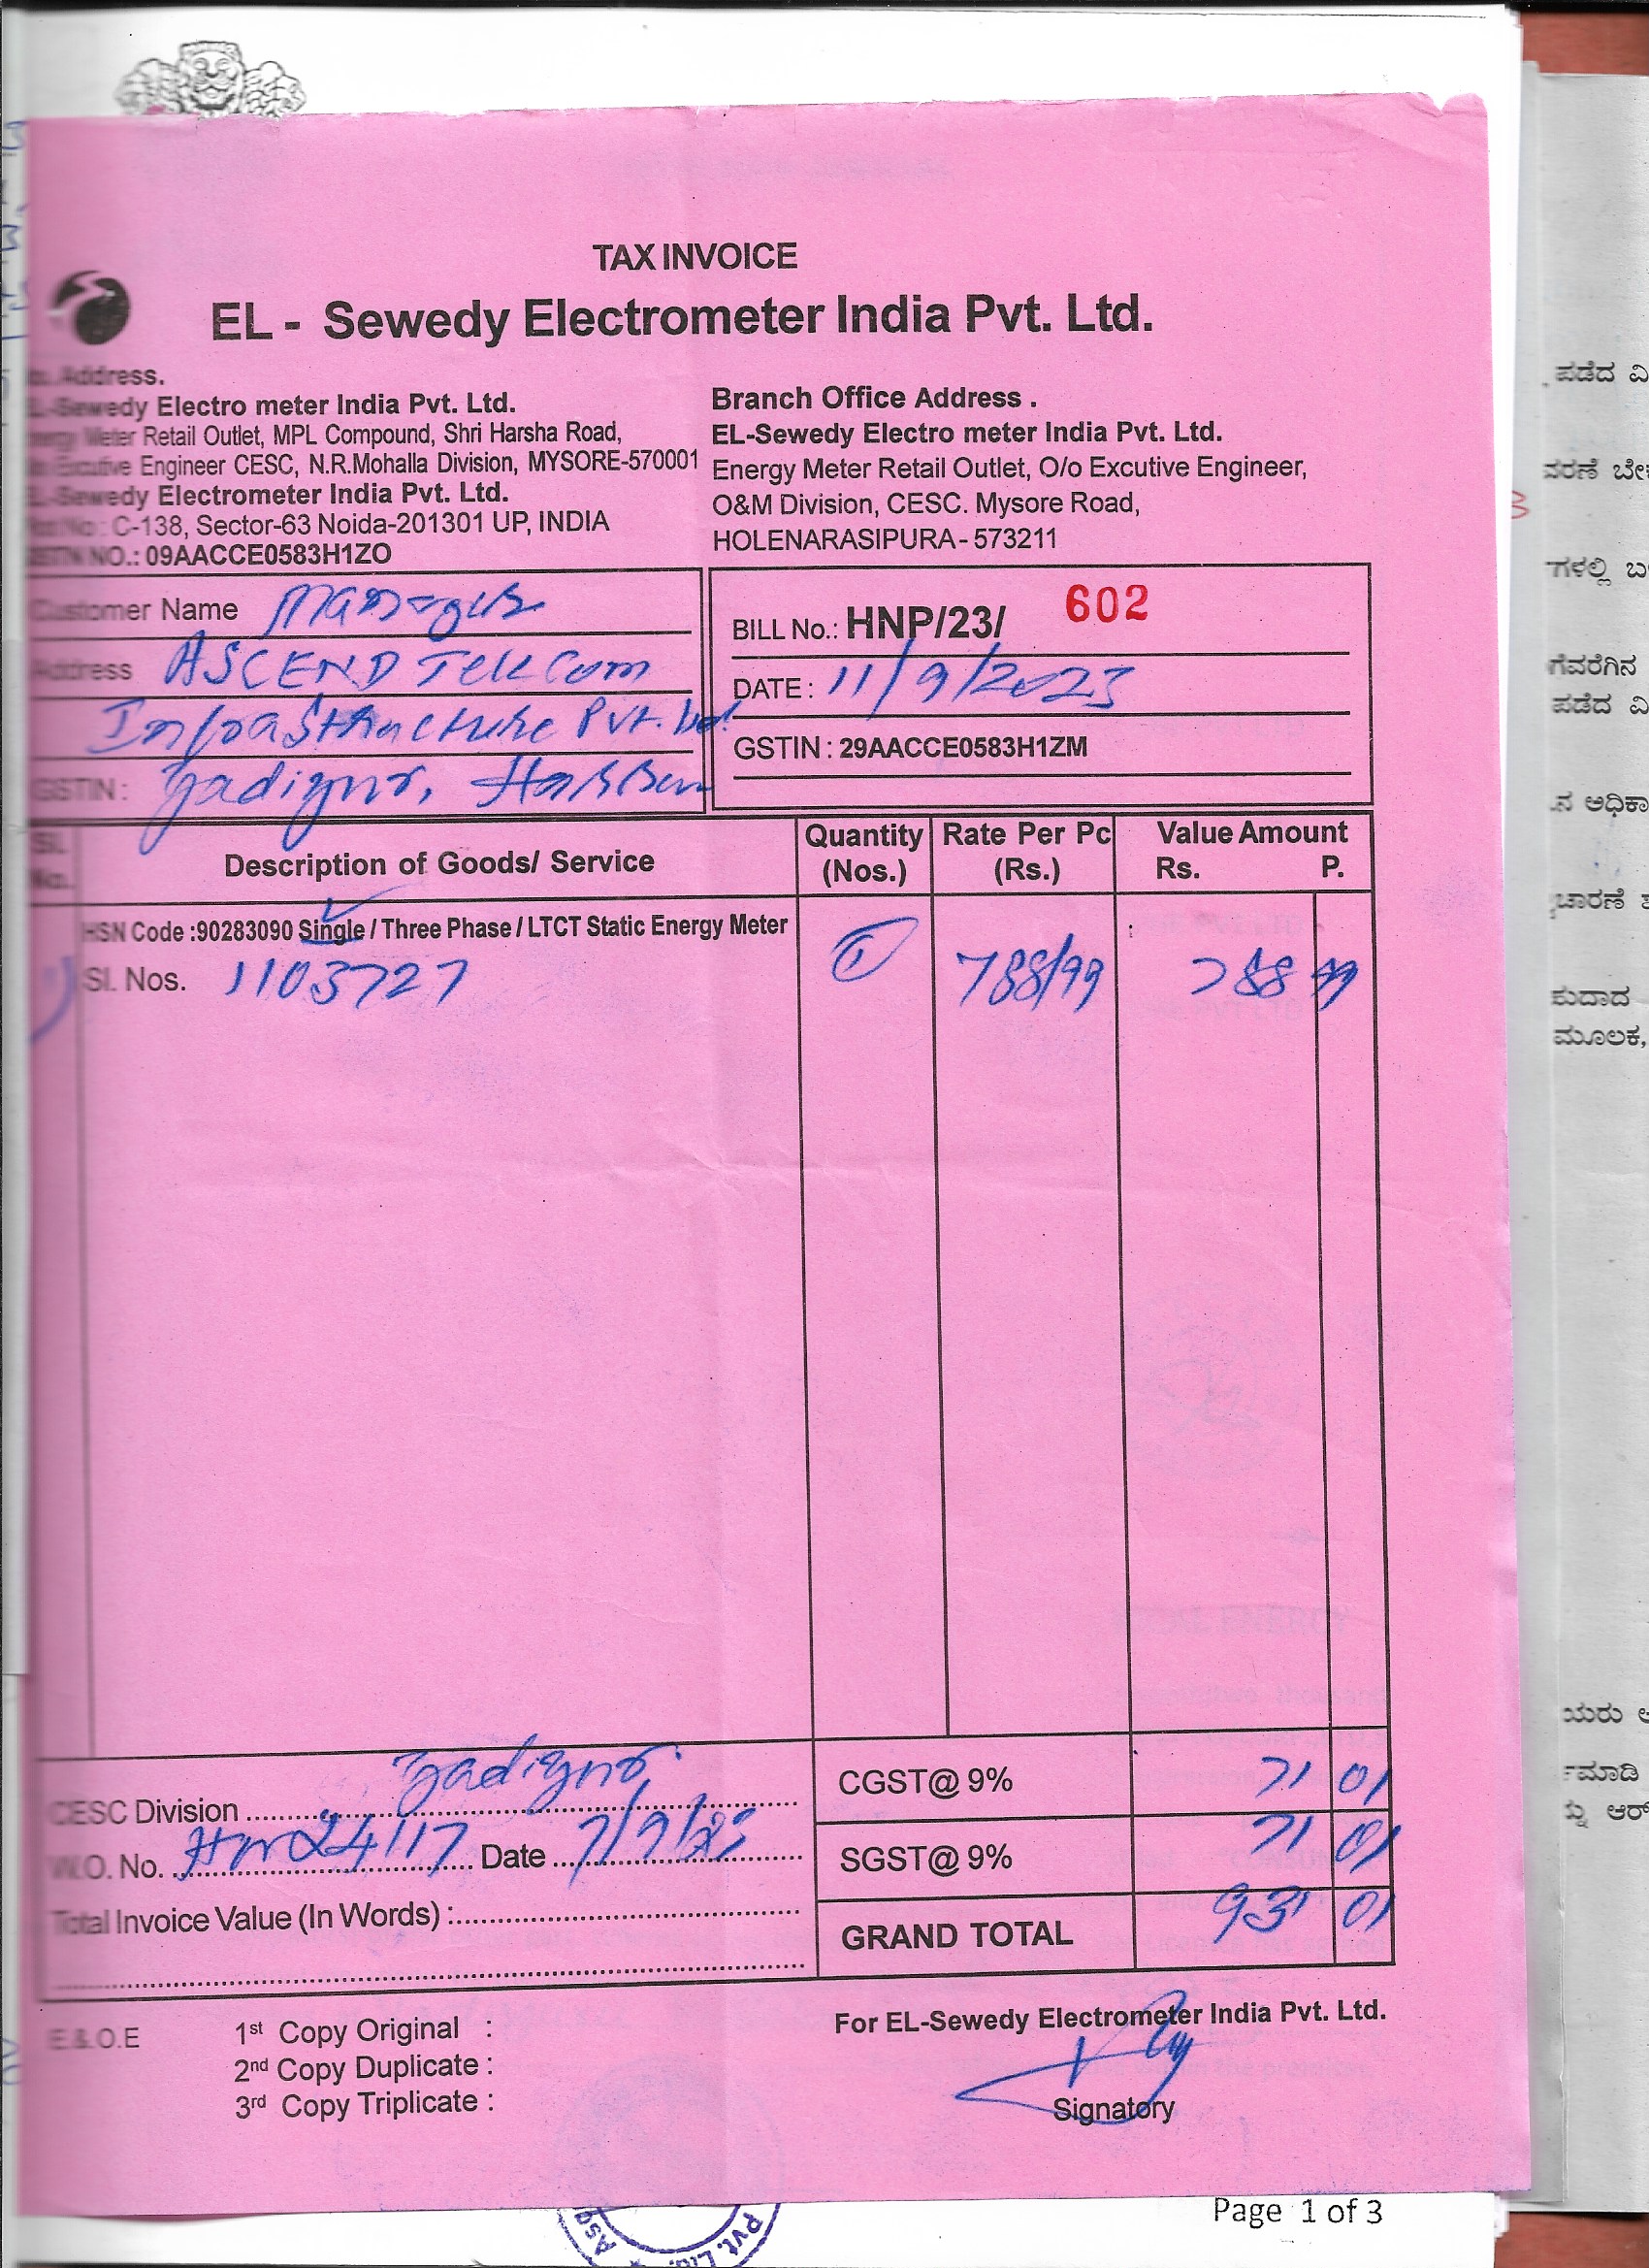 TAX INVOICE
EL - Sewedy Electrometer India Pvt. Ltd.
Address.
EL-Sewedy Electro meter India Pvt. Ltd.
Energy Meter Retail Outlet, MPL Compound, Shri Harsha Road,
Excutive Engineer CESC, N.R.Mohalla Division, MYSORE-570001
EL-Sewedy Electrometer India Pvt. Ltd.
C-138, Sector-63 Noida-201301 UP, INDIA
GSTIN NO.: 09AACCE0583H1ZO
Branch Office Address .
EL-Sewedy Electro meter India Pvt. Ltd.
Energy Meter Retail Outlet, O/o Excutive Engineer,
O&M Division, CESC. Mysore Road,
HOLENARASIPURA - 573211
Customer Name
Address ASCEND Telecom
Infrastructure Pvt. Ltd.
GSTIN :
BILL No.: HNP/23/ 602
DATE : 11/9/2023
GSTIN : 29AACCE0583H1ZM
Sl. No. Description of Goods/ Service Quantity (Nos.) Rate Per Pc (Rs.) Value Amount Rs. P.
HSN Code :90283090 Single / Three Phase / LTCT Static Energy Meter
1) Sl. Nos. 1103727 1 788/99 788 99
CESC Division
W.O. No. 24117 Date 7/9/23
Total Invoice Value (In Words) :
CGST@ 9% 71 01
SGST@ 9% 71 01
GRAND TOTAL 931 01
E.&.O.E
1st Copy Original :
2nd Copy Duplicate :
3rd Copy Triplicate :
For EL-Sewedy Electrometer India Pvt. Ltd.
Signatory
Page 1 of 3
Pvt. Ltd.
ಪಡೆದ ವಿ
ಪಡೆದ ವಿ
ಮೂಲಕ,